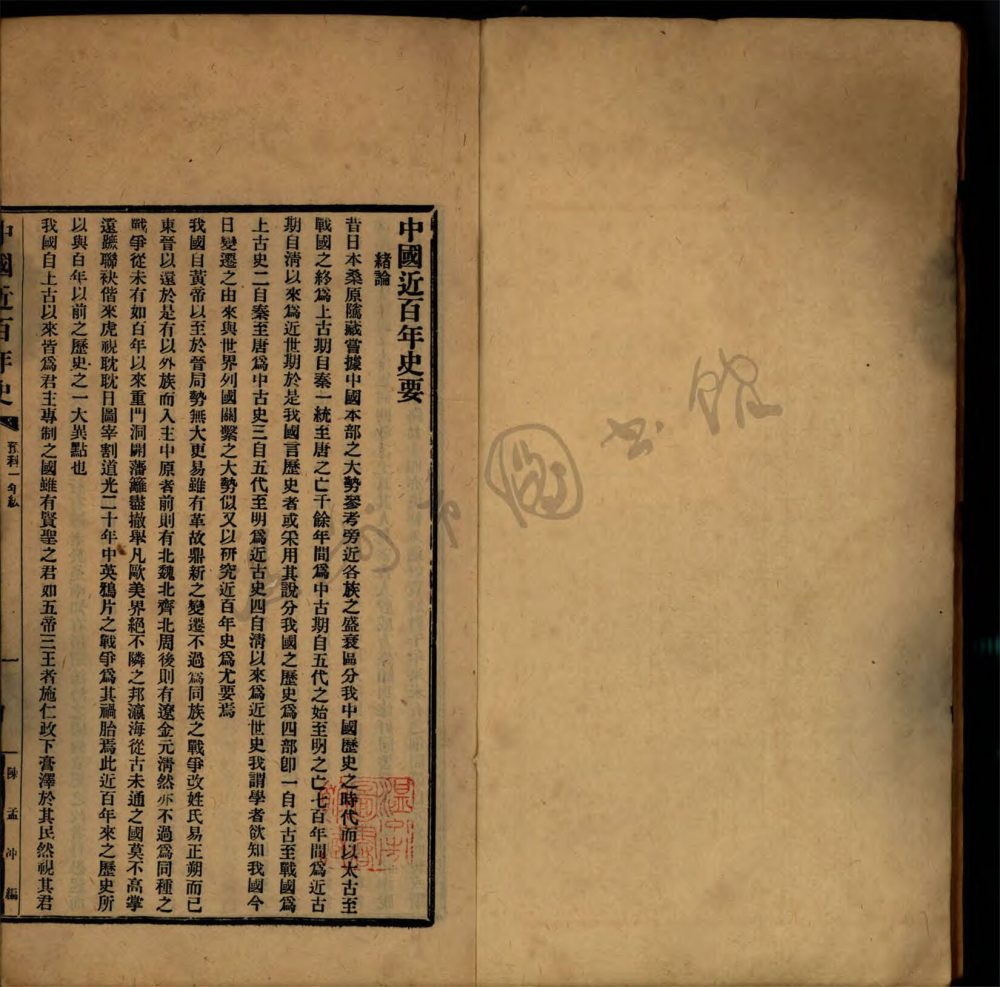 中國近百年史要
緒論
昔日本桑原隲藏嘗據中國本部之大勢參考旁近各族之盛衰區分我中國歷史之時代而以太古至
戰國之終爲上古期自秦一統至唐之亡千餘年間爲中古期自五代之始至明之亡七百年間爲近古
期自清以來爲近世期於是我國言歷史者或采用其說分我國之歷史爲四部卽一自太古至戰國爲
上古史二自秦至唐爲中古史三自五代至明爲近古史四自清以來爲近世史我謂學者欲知我國今
日變遷之由來與世界列國關繫之大勢似又以研究近百年史爲尤要焉
我國自黃帝以至於晉局勢無大更易雖有革故鼎新之變遷不過爲同族之戰爭改姓氏易正朔而已
東晉以還於是有以外族而入主中原者前則有北魏北齊北周後則有遼金元清然亦不過爲同種之
戰爭從未有如百年以來重門洞闢藩籬盡撤舉凡歐美界絕不隣之邦瀛海從古未通之國莫不高掌
遠蹠聯袂偕來虎視耽耽日圖宰割道光二十年中英鴉片之戰爭爲其禍胎焉此近百年來之歷史所
以與百年以前之歷史之一大異點也
我國自上古以來皆爲君主專制之國雖有賢聖之君如五帝三王者施仁政下膏澤於其民然視其君
中國近百年史
預科一年級
一
陳孟沖編
圖書館